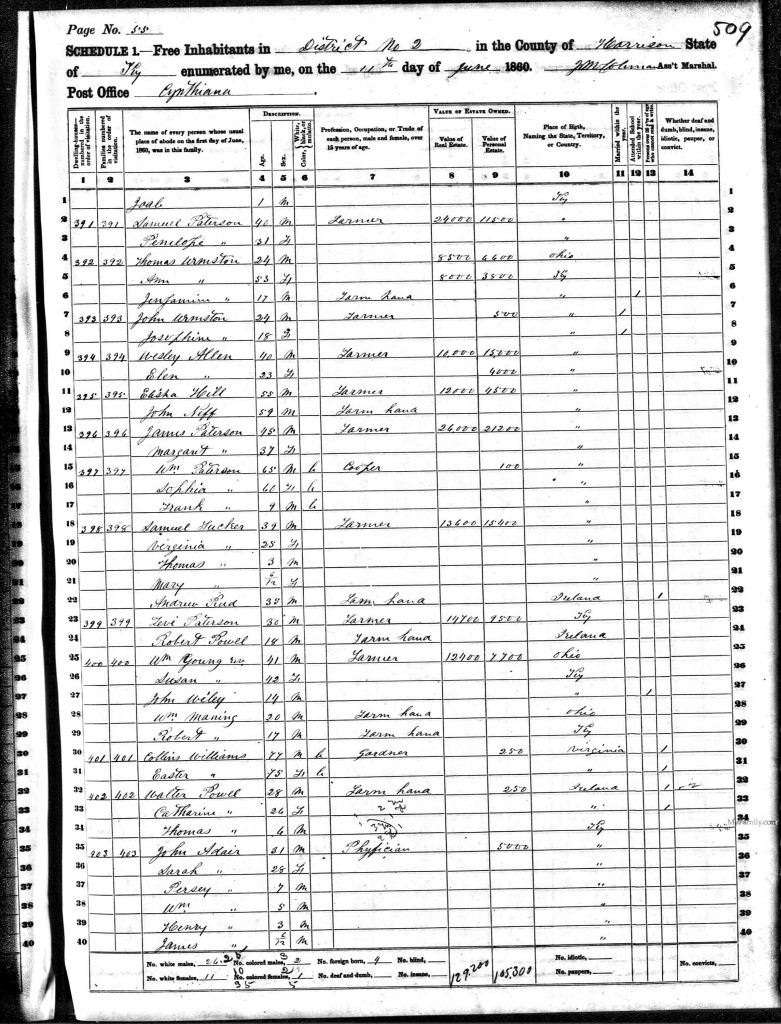 509
Page No. 55
SCHEDULE 1.—Free Inhabitants in District No 2 in the County of Harrison State
of Ky enumerated by me, on the 11th day of June 1860. Ass't Marshal.
Post Office Cynthiana
DESCRIPTION. VALUE OF ESTATE OWNED.
Dwelling-houses—numbered in the order of visitation. Families numbered in the order of visitation. The name of every person whose usual place of abode on the first day of June, 1860, was in this family. Age. Sex. Color, White, black, or mulatto. Profession, Occupation, or Trade of each person, male and female, over 15 years of age. Value of Real Estate. Value of Personal Estate. Place of Birth, Naming the State, Territory, or Country. Married within the year. Attended School within the year. Persons over 20 y'rs of age who cannot read & write. Whether deaf and dumb, blind, insane, idiotic, pauper, or convict.
1 2 3 4 5 6 7 8 9 10 11 12 13 14
1 Joab 1 M Ky 1
2 391 391 Samuel Paterson 40 M Farmer 24000 11500 " 2
3 Penelope " 31 F " 3
4 392 392 Thomas Urmston 24 M 8500 6600 Ohio 4
5 Ann " 53 F 8000 3800 Ky 5
6 Benjamin " 17 M Farm hand " 1 6
7 393 393 John Urmston 24 M Farmer 500 " 1 7
8 Josephine " 18 F " 1 8
9 394 394 Wesley Allen 40 M Farmer 10,000 15,000 " 9
10 Elen " 23 F 4000 " 10
11 395 395 Elisha Hill 55 M Farmer 12000 4500 " 11
12 John Neff 59 M Farm hand " 12
13 396 396 James Paterson 45 M Farmer 26,000 21200 " 13
14 Margaret " 37 F " 14
15 397 397 Wm Paterson 65 M b Cooper 100 " 15
16 Sophia " 60 F b " 16
17 Frank " 9 M b " 17
18 398 398 Samuel Tucker 39 M Farmer 13600 15400 " 18
19 Virginia " 25 F " 19
20 Thomas " 3 M " 20
21 Mary " 6/12 F " 21
22 Andrew Reed 35 M Farm hand Ireland 1 22
23 399 399 Levi Paterson 30 M Farmer 14700 9500 Ky 23
24 Robert Powell 18 M Farm hand Ireland 24
25 400 400 Wm Young 41 M Farmer 12400 7700 Ohio 25
26 Susan " 42 F Ky 26
27 John Wiley 14 M " 1 27
28 Wm Maning 20 M Farm hand Ohio 28
29 Robert " 17 M Farm hand Ky 29
30 401 401 Collins Williams 77 M b Gardner 250 Virginia 1 30
31 Easter " 75 F b " 1 31
32 402 402 Walter Powell 28 M Farm hand 250 Ireland 1 32
33 Catharine " 26 F " 1 33
34 Thomas " 6 M Ky 34
35 403 403 John Adair 31 M Physician 5000 " 35
36 Sarah " 28 F " 36
37 Persey " 7 M " 37
38 Wm " 5 M " 38
39 Henry " 3 M " 39
40 James " 6/12 M " 40
No. white males, 26 No. colored males, 2 No. foreign born, 4 No. blind, 129,200 105,300 No. idiotic, No. convicts,
No. white females, 11 No. colored females, No. deaf and dumb, No. insane, No. paupers,
MyFamily.com